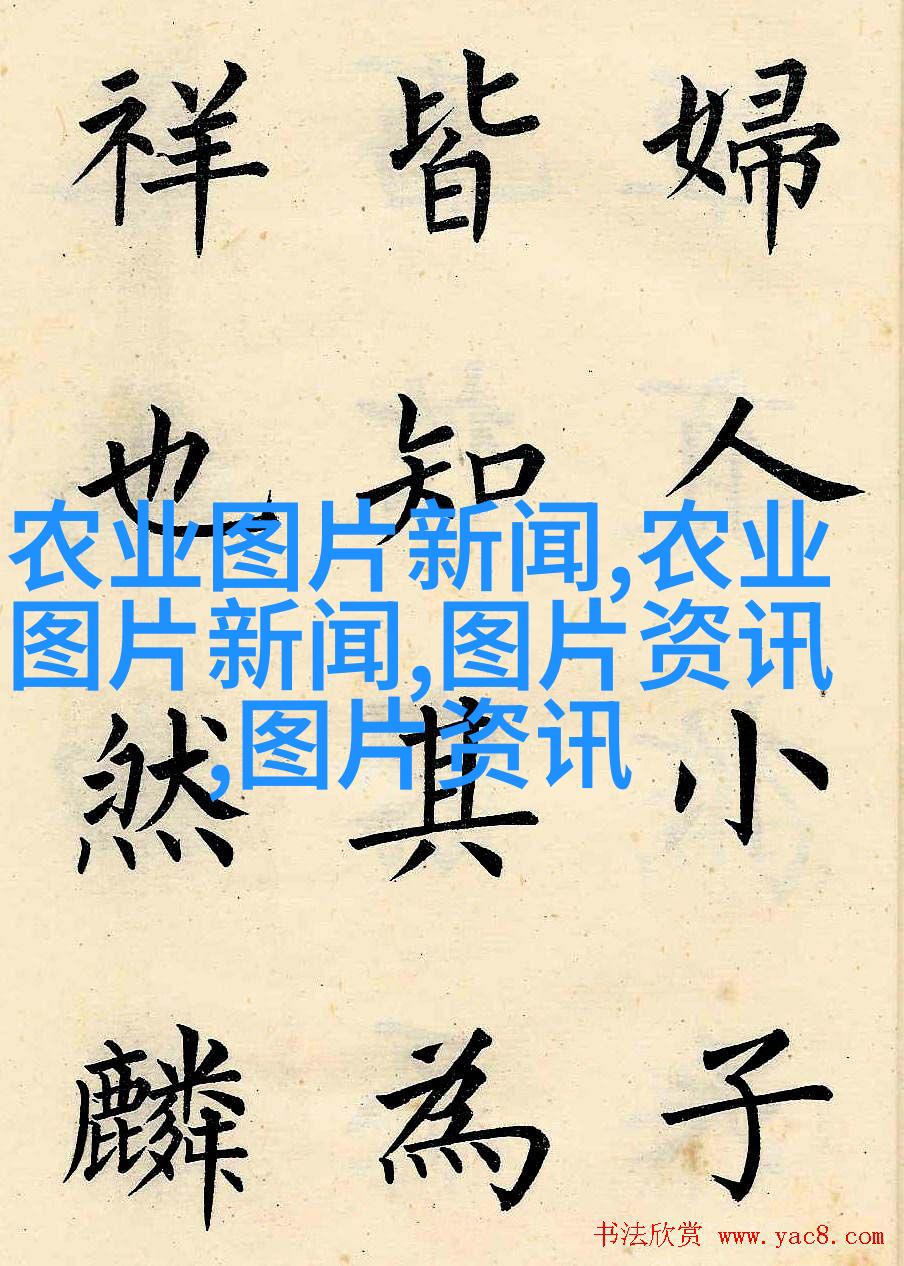 婦人小子
皆知其為
祥也然麟
农业图片新闻,农业
图片新闻,图片资讯
,图片资讯
书法欣赏 www.yac8.com